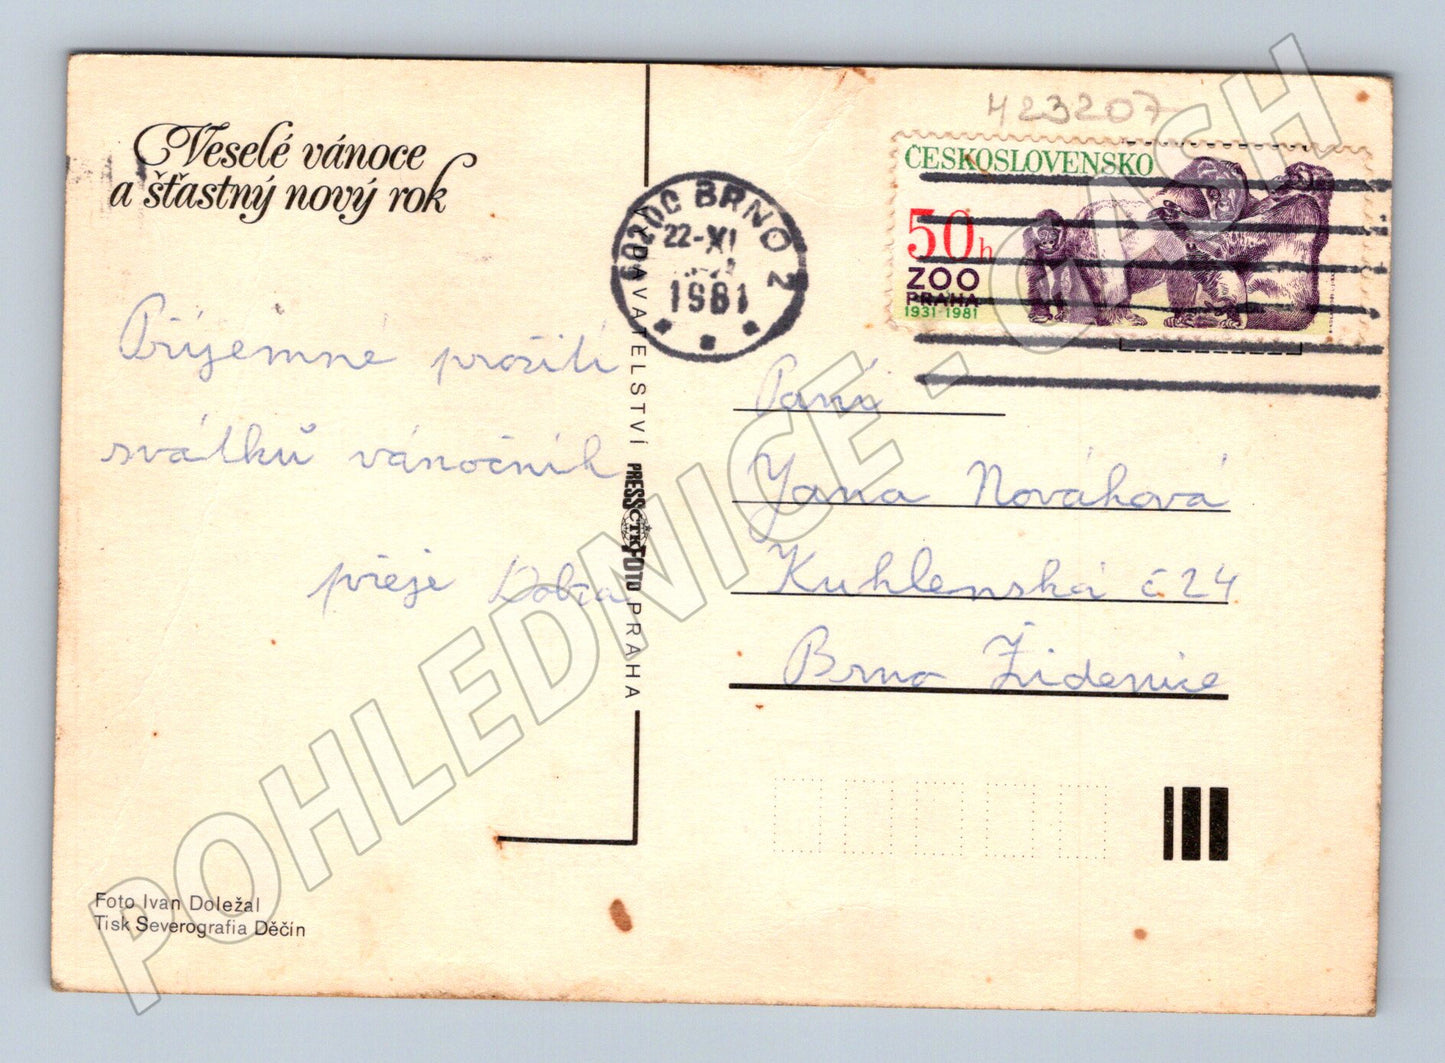 Veselé vánoce
a šťastný nový rok
423207
ČESKOSLOVENSKO
50h
ZOO
PRAHA
1931-1981
602 00 BRNO 2
22-XI
1981
Příjemné prožití
svátků vánočnih
přeje
VYDAVATELSTVÍ PRESSFOTO PRAHA
ČTK
Paní
Jana Nováková
Kuhlenská č 24
Brno Židenice
Foto Ivan Doležal
Tisk Severografia Děčín
POHLEDNICE - CASH